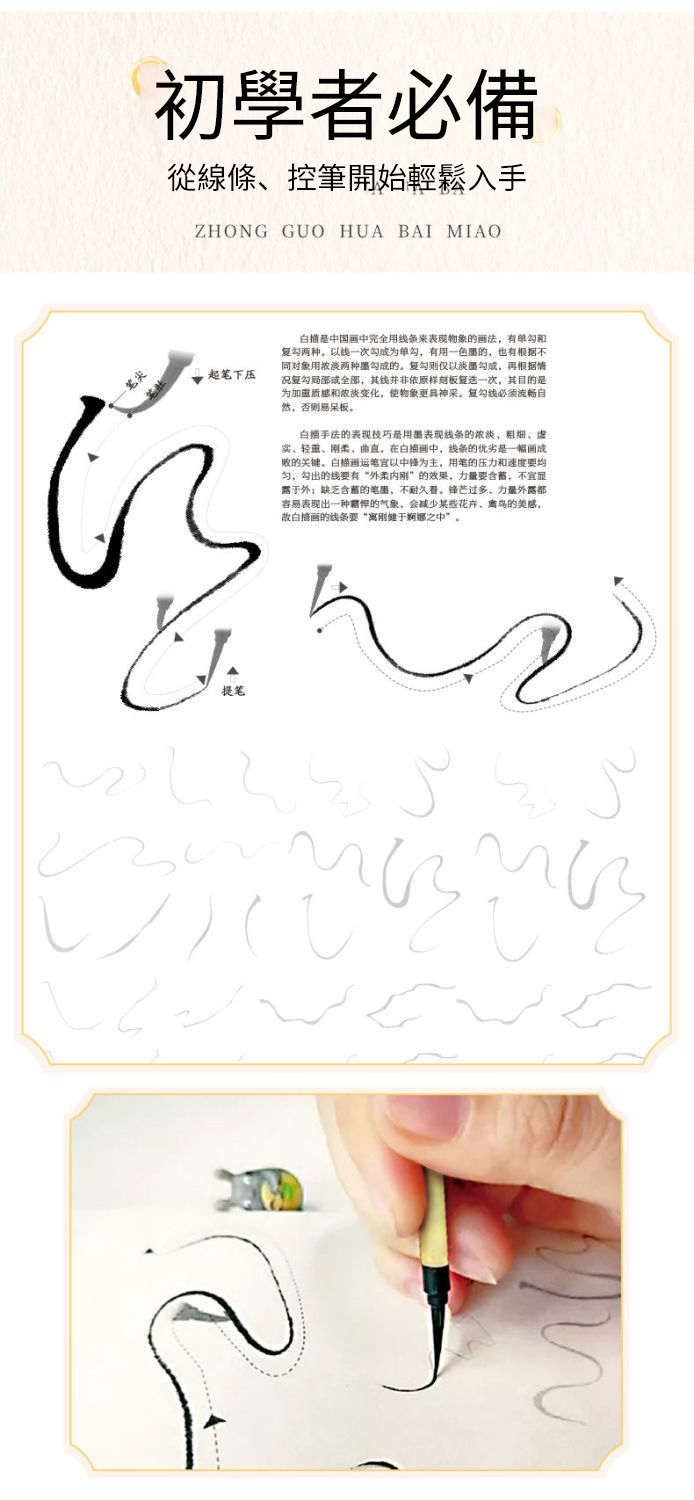 初學者必備
從線條、控筆開始輕鬆入手
ZHONG GUO HUA BAI MIAO
白描是中国画中完全用线条来表现物象的画法，有单勾和
复勾两种。以线一次勾成为单勾，有用一色墨的，也有根据不
同对象用浓淡两种墨勾成的。复勾则仅以淡墨勾成，再根据情
况复勾局部或全部，其线并非依原样刻板复迭一次，其目的是
为加重质感和浓淡变化，使物象更具神采。复勾线必须流畅自
然，否则易呆板。
白描手法的表现技巧是用墨表现线条的浓淡、粗细、虚
实、轻重、刚柔、曲直。在白描画中，线条的优劣是一幅画成
败的关键。白描画运笔宜以中锋为主，用笔的压力和速度要均
匀，勾出的线要有“外柔内刚”的效果，力量要含蓄，不宜显
露于外；缺乏含蓄的笔墨，不耐久看。锋芒过多、力量外露都
容易表现出一种霸悍的气象，会减少某些花卉、禽鸟的美感，
故白描画的线条要“寓刚健于婀娜之中”。
笔尖
笔肚
起笔下压
提笔